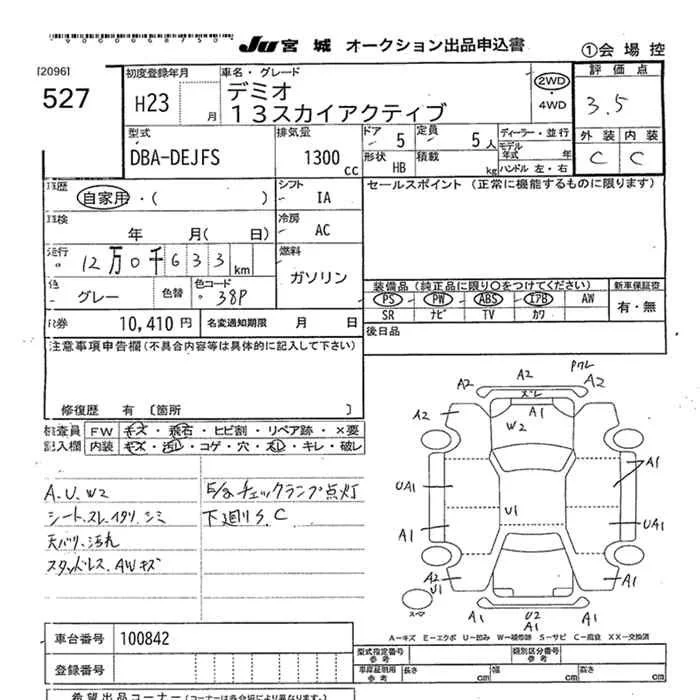 JU 宮城 オークション出品申込書
①会場控
[2096]
527
初度登録年月
H23 月
車名・グレード
デミオ
13スカイアクティブ
2WD
・4WD
評価点
3.5
外装 内装
C C
型式
DBA-DEJFS
排気量
1300 cc
ドア 5
定員 5人
形状 HB
積載 kg
ディーラー・並行
モデル年式 年
ハンドル 左・右
車歴
自家用・( )
シフト
IA
セールスポイント (正常に機能するものに限ります)
車検
年 月( 日)
冷房
AC
走行
12万0千633 km
燃料
ガソリン
色
グレー
色替
色コード
38P
装備品 (純正品に限り○をつけてください)
PS PW ABS エアB AW
SR ナビ TV カワ
新車保証書
有・無
R券 10,410 円
名変通知期限 月 日
後日品
注意事項申告欄(不具合内容等は具体的に記入して下さい)
修復歴 有 〔箇所 〕
検査員
記入欄
FW キズ・飛石・ヒビ割・リペア跡・×要
内装 キズ・汚レ・コゲ・穴・スレ・キレ・破レ
A.U.W2
シート.スレ.イタリ.シミ
天バリ.汚れ
スタッドレス.AWキズ
E/gチェックランプ点灯
下廻りS.C
A2
A2
A2
スレ
A1
A2
W2
A1
UA1
U1
UA1
A1
A2
U1
A1
スペア
A1
U2
A1
A1
A-キズ E-エクボ U-凹み W-補修跡 S-サビ C-腐食 XX-交換済
車台番号 100842
登録番号
型式指定番号
参考
類別区分番号
参考
車庫証明用
参考
長さ cm
幅 cm
高さ cm
希望出品コーナー(コーナーは各会場により異なります)